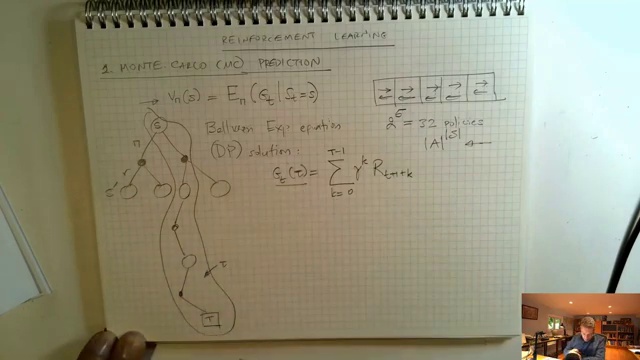 REINFORCEMENT LEARNING
1. MONTE CARLO (MC) PREDICTION
→ Vπ(s) = Eπ(Gt | St=s)
Bellman Exp. equation
(DP) solution:
Gt(τ) = Σ_{k=0}^{T-1} γ^k R_{t+1+k}
2^5 = 32 policies
|A|^|S| ←
S
π
r
s'
τ
T